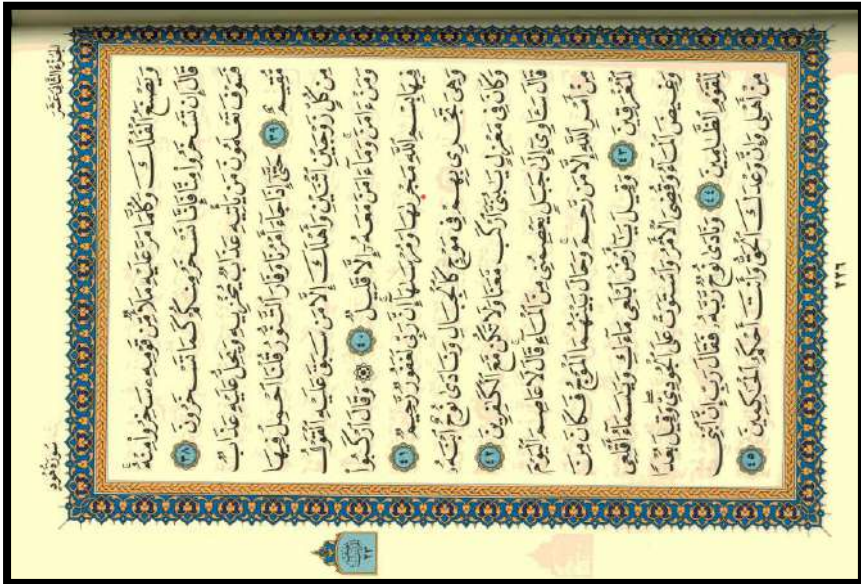 الجزء الثاني عشر
سورة هود
وَيَصْنَعُ ٱلْفُلْكَ وَكُلَّمَا مَرَّ عَلَيْهِ مَلَأٌ مِّن قَوْمِهِۦ سَخِرُوا۟ مِنْهُ ۚ
قَالَ إِن تَسْخَرُوا۟ مِنَّا فَإِنَّا نَسْخَرُ مِنكُمْ كَمَا تَسْخَرُونَ ٣٨
فَسَوْفَ تَعْلَمُونَ مَن يَأْتِيهِ عَذَابٌ يُخْزِيهِ وَيَحِلُّ عَلَيْهِ عَذَابٌ
مُّقِيمٌ ٣٩ حَتَّىٰٓ إِذَا جَآءَ أَمْرُنَا وَفَارَ ٱلتَّنُّورُ قُلْنَا ٱحْمِلْ فِيهَا
مِن كُلٍّ زَوْجَيْنِ ٱثْنَيْنِ وَأَهْلَكَ إِلَّا مَن سَبَقَ عَلَيْهِ ٱلْقَوْلُ
وَمَنْ ءَامَنَ ۚ وَمَآ ءَامَنَ مَعَهُۥٓ إِلَّا قَلِيلٌ ٤٠ ۞ وَقَالَ ٱرْكَبُوا۟
فِيهَا بِسْمِ ٱللَّهِ مَجْر۪ىٰهَا وَمُرْسَىٰهَآ ۚ إِنَّ رَبِّى لَغَفُورٌ رَّحِيمٌ ٤١
وَهِىَ تَجْرِى بِهِمْ فِى مَوْجٍ كَٱلْجِبَالِ وَنَادَىٰ نُوحٌ ٱبْنَهُۥ
وَكَانَ فِى مَعْزِلٍ يَٰبُنَىَّ ٱرْكَب مَّعَنَا وَلَا تَكُن مَّعَ ٱلْكَٰفِرِينَ ٤٢
قَالَ سَـَٔاوِىٓ إِلَىٰ جَبَلٍ يَعْصِمُنِى مِنَ ٱلْمَآءِ ۚ قَالَ لَا عَاصِمَ ٱلْيَوْمَ
مِنْ أَمْرِ ٱللَّهِ إِلَّا مَن رَّحِمَ ۚ وَحَالَ بَيْنَهُمَا ٱلْمَوْجُ فَكَانَ مِنَ
ٱلْمُغْرَقِينَ ٤٣ وَقِيلَ يَٰٓأَرْضُ ٱبْلَعِى مَآءَكِ وَيَٰسَمَآءُ أَقْلِعِى
وَغِيضَ ٱلْمَآءُ وَقُضِىَ ٱلْأَمْرُ وَٱسْتَوَتْ عَلَى ٱلْجُودِىِّ ۖ وَقِيلَ بُعْدًا
لِّلْقَوْمِ ٱلظَّٰلِمِينَ ٤٤ وَنَادَىٰ نُوحٌ رَّبَّهُۥ فَقَالَ رَبِّ إِنَّ ٱبْنِى
مِنْ أَهْلِى وَإِنَّ وَعْدَكَ ٱلْحَقُّ وَأَنتَ أَحْكَمُ ٱلْحَٰكِمِينَ ٤٥
٢٢٦